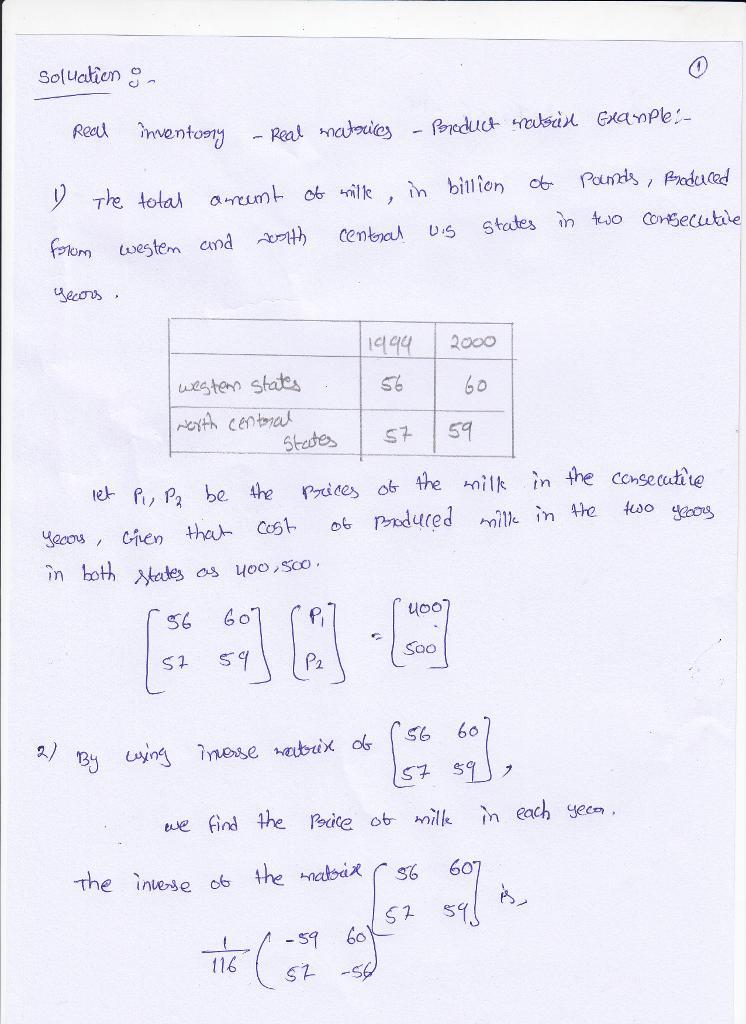 ①
Soluation :-
Real inventory - Real matrices - Product matrix Example:-
1) The total amount of milk, in billion of Pounds, Produced
from western and north central U.S states in two consecutive
years.
1999 2000
western states 56 60
north central
states 57 59
let P1, P2 be the Prices of the milk in the consecutive
years, Given that cost of Produced milk in the two years
in both states as 400, 500.
[56 60] [P1] = [400]
[57 59] [P2] [500]
2) By using inverse matrix of [56 60]
[57 59],
we find the Price of milk in each year.
The inverse of the matrix [56 60]
[57 59] is,
1/116 (-59 60)
(57 -56)